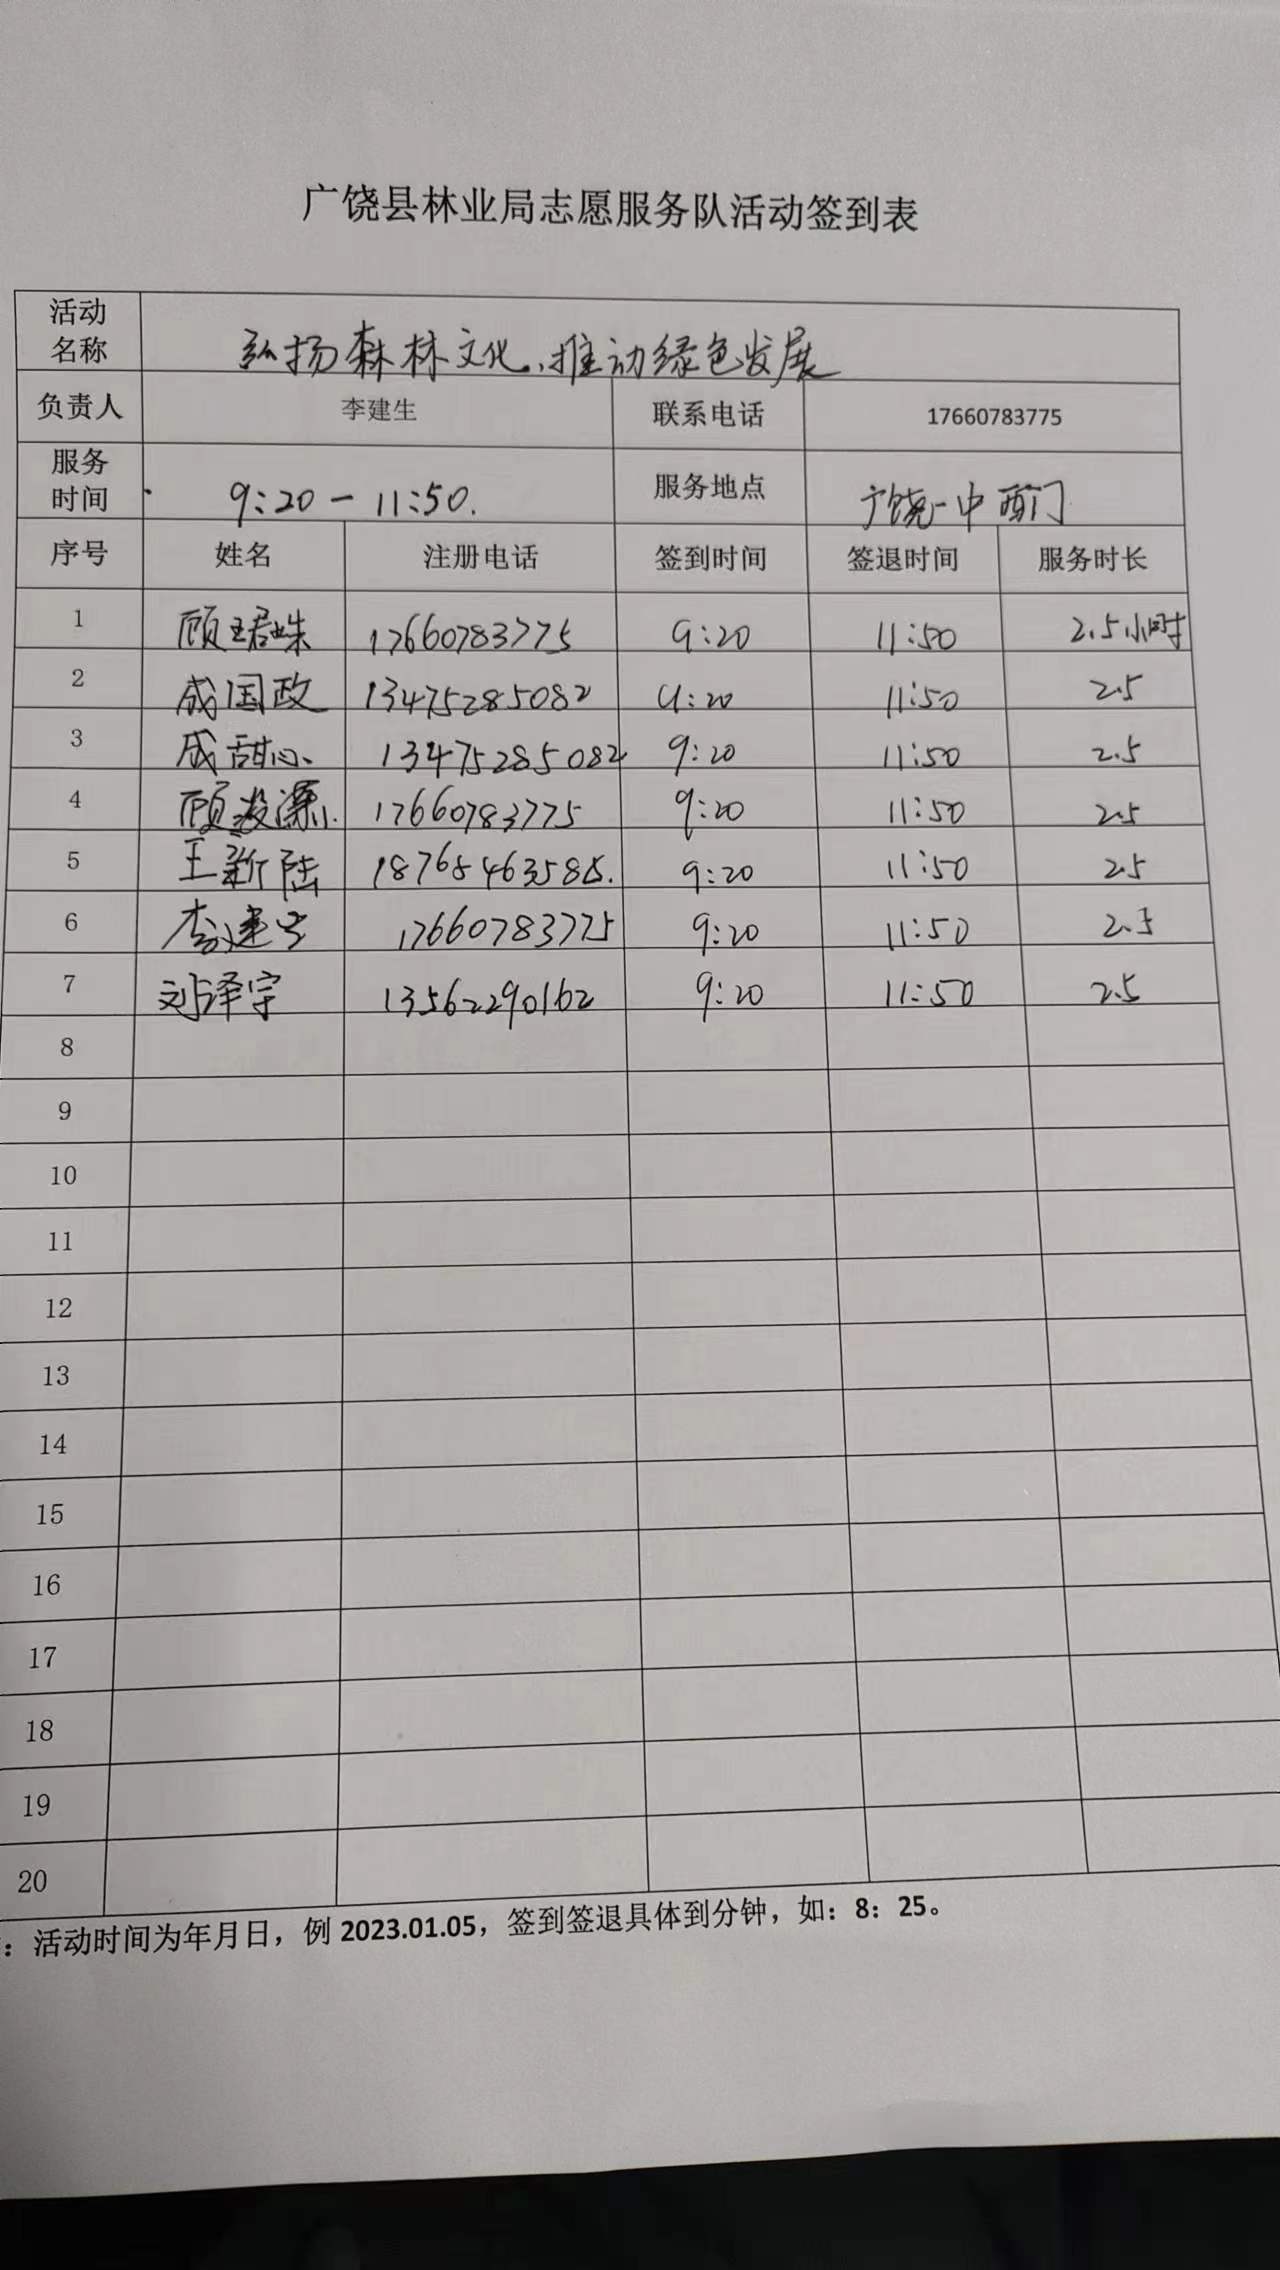 广饶县林业局志愿服务队活动签到表
活动名称 弘扬森林文化、推动绿色发展
负责人 李建生 联系电话 17660783775
服务时间 9:20-11:50. 服务地点 广饶一中西门
序号 姓名 注册电话 签到时间 签退时间 服务时长
1 顾珺姝 17660783775 9:20 11:50 2.5小时
2 成国政 13475285082 9:20 11:50 2.5
3 成甜心 13475285082 9:20 11:50 2.5
4 顾 17660783775 9:20 11:50 2.5
5 王新陆 9:20 11:50 2.5
6 李建生 17660783775 9:20 11:50 2.5
7 刘泽宇 13562290162 9:20 11:50 2.5
8
9
10
11
12
13
14
15
16
17
18
19
20
：活动时间为年月日，例 2023.01.05，签到签退具体到分钟，如：8：25。